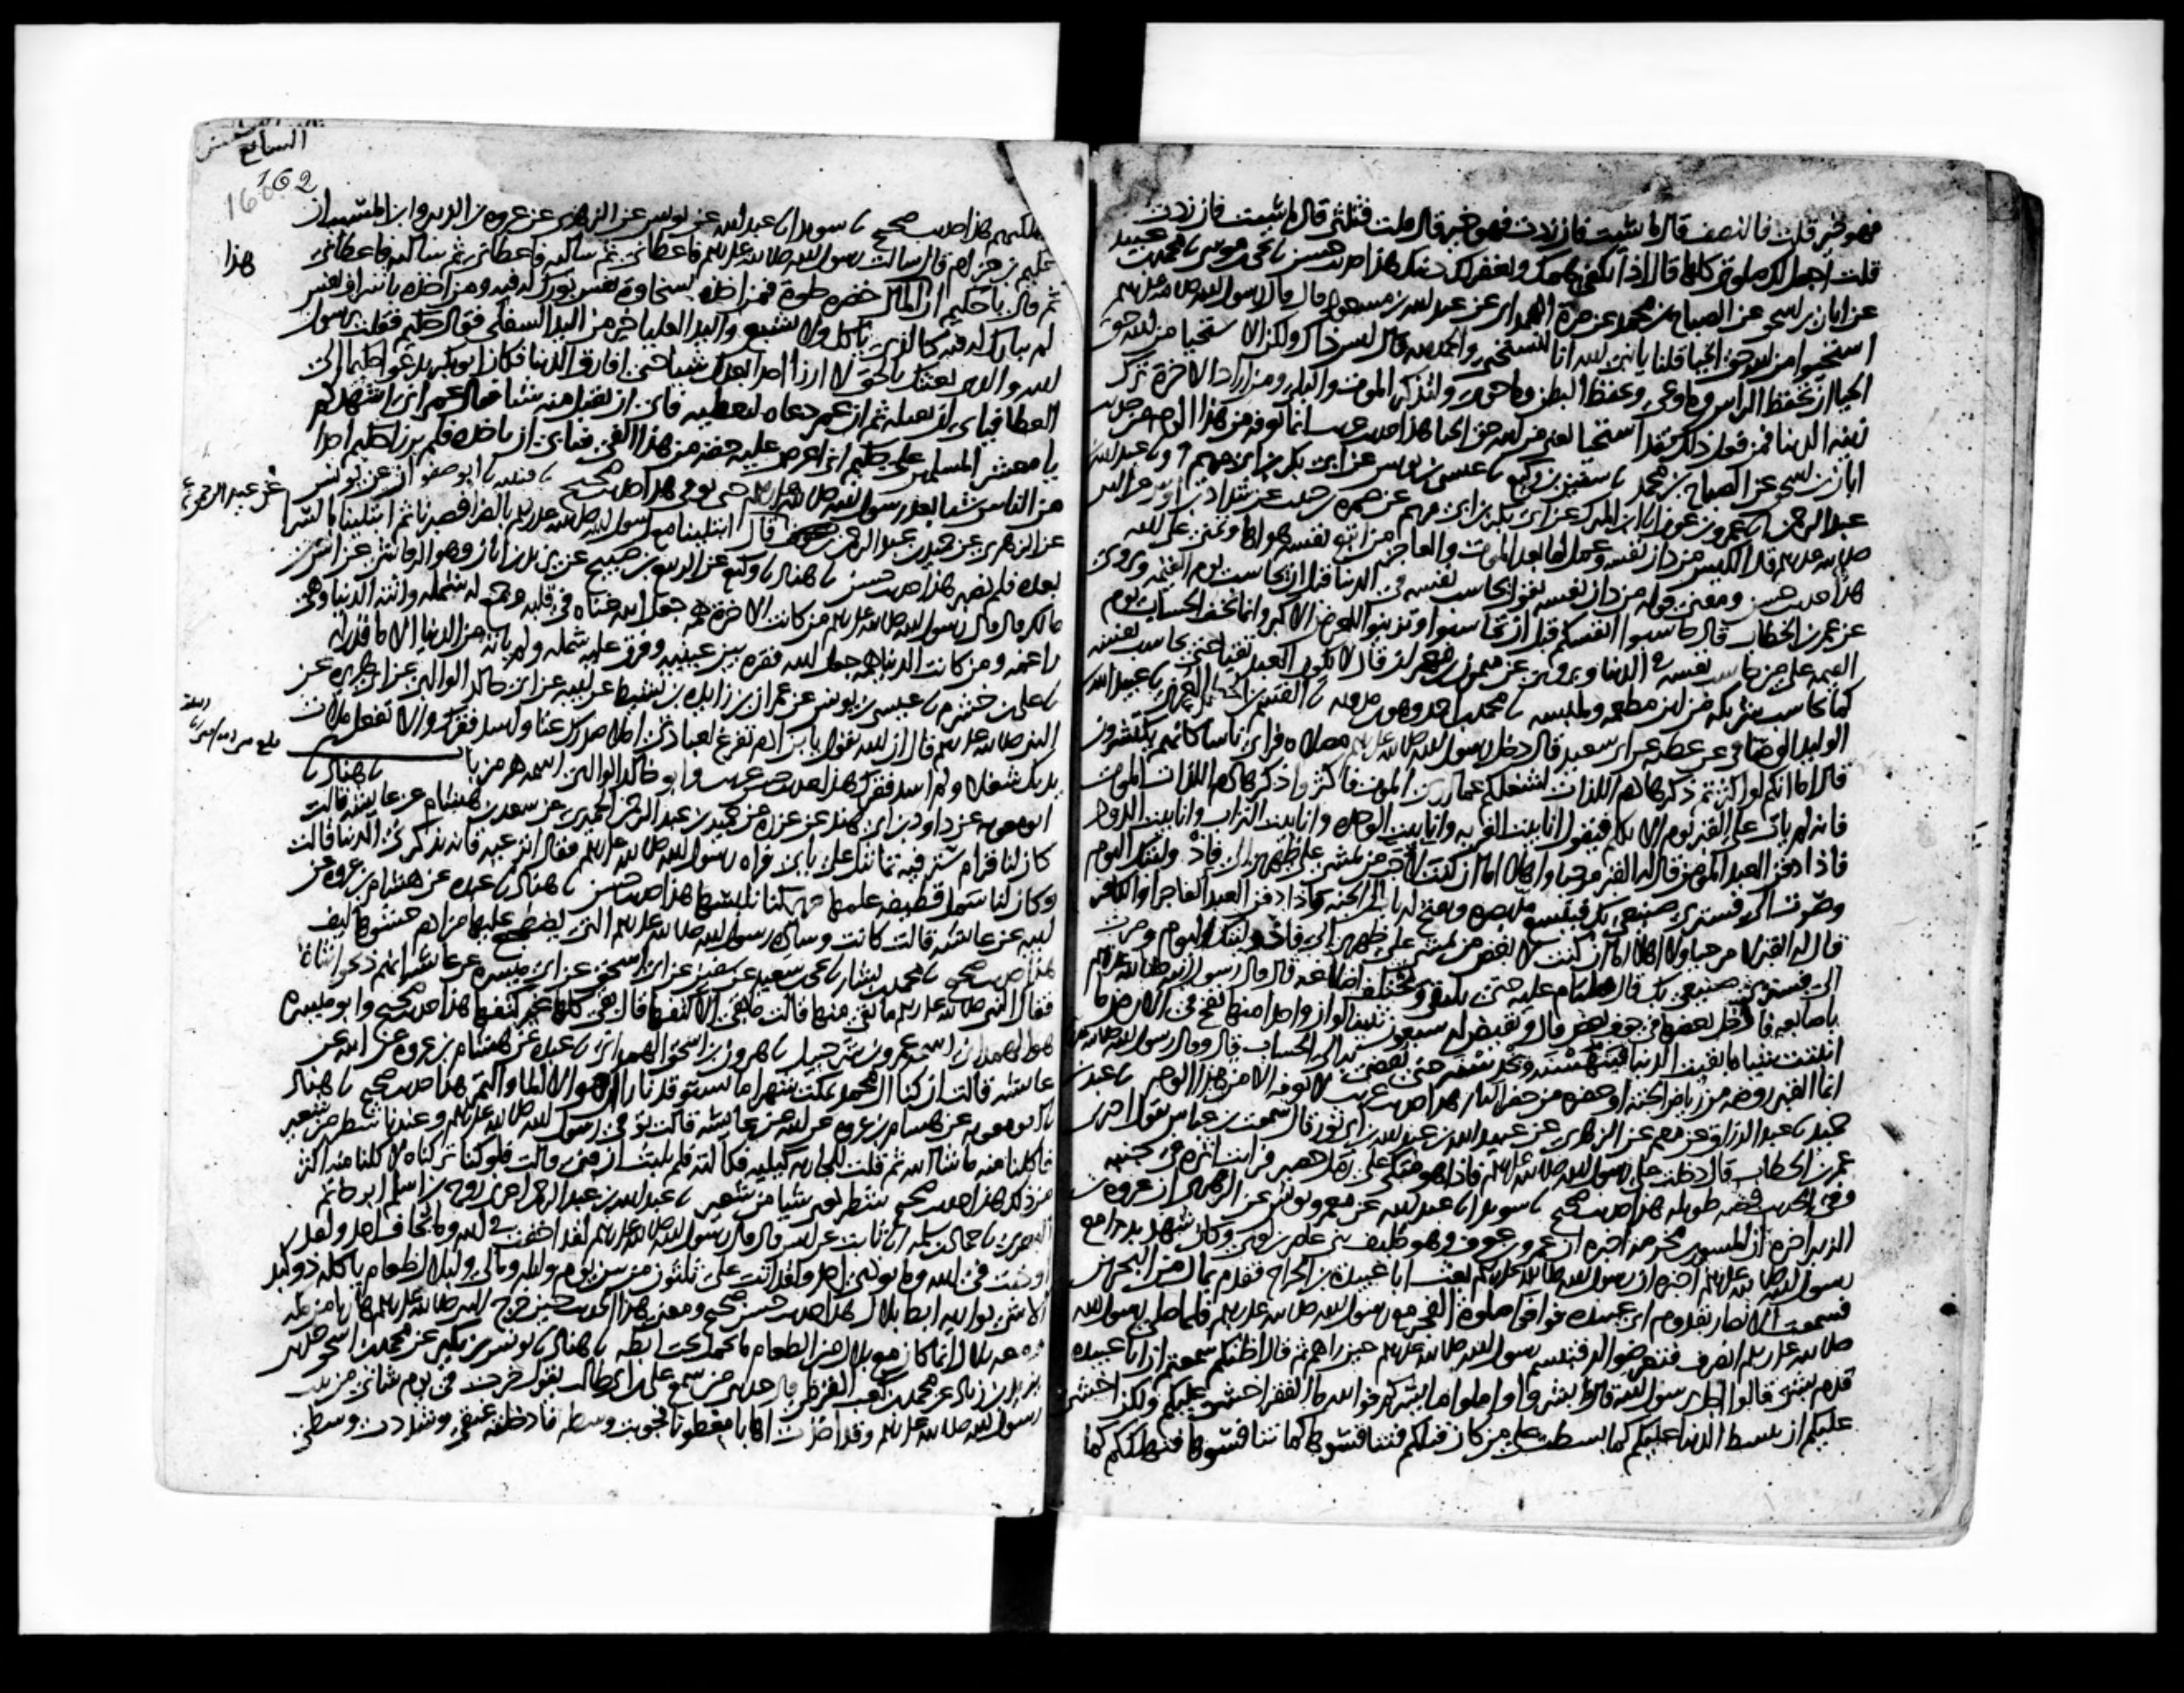 فهو خير قلت فالنصف قال ما شيت فان زدت فهو خير قال قلت فثلثي قال ما شيت فان زدت
قلت اجعل لك صلوتي كلها قال اذا تكفى همك ويغفر لك ذنبك هذا حديث حسن يحيى بن موسى محمد بن عبيد
عن ابان بن اسحق عن الصباح بن محمد عن مرة الهمداني عن عبد الله بن مسعود قال قال رسول الله
استحيوا من الله حق الحيا قلنا يا نبي الله انا لنستحيي والحمد لله قال ليس ذاك ولكن الاستحيا من الله حق
الحيا ان تحفظ الراس وما وعى وتحفظ البطن وما حوى وتتذكر الموت والبلى ومن اراد الاخرة ترك
زينة الدنيا فمن فعل ذلك فقد استحيا يعني من الله حق الحيا هذا حديث انما نعرفه من هذا الوجه من حديث
ابان بن اسحق عن الصباح بن محمد سفين بن وكيع عيسى بن يونس عن ابي بكر بن ابي مريم وعبد الله بن
عبد الرحمن عمرو بن عون ابن المبارك عن ابي بكر بن ابي مريم عن ضمرة بن حبيب عن شداد بن اوس عن النبي
قال الكيس من دان نفسه وعمل لما بعد الموت والعاجز من اتبع نفسه هواها وتمنى على الله
هذا حديث حسن ومعنى قوله من دان نفسه يقول يحاسب نفسه في الدنيا قبل ان يحاسب يوم القيمة ويروى
عن عمر بن الخطاب قال حاسبوا انفسكم قبل ان تحاسبوا وتزينوا للعرض الاكبر وانما يخف الحساب يوم
القيمة على من حاسب نفسه في الدنيا ويروى عن ميمون بن مهران قال لا يكون العبد تقيا حتى يحاسب نفسه
كما يحاسب شريكه من اين مطعمه وملبسه محمد بن احمد وهو بن مدويه القسم بن الحكم العرني عبيد الله بن
الوليد الوصافي عن عطية عن ابي سعيد قال دخل رسول الله مصلاه فراى ناسا كانهم يكتشرون
قال اما انكم لو اكثرتم ذكر هاذم اللذات لشغلكم عما ارى الموت فاكثروا ذكر هاذم اللذات الموت
فانه لم يات على القبر يوم الا تكلم فيقول انا بيت الغربة وانا بيت الوحدة وانا بيت التراب وانا بيت الدود
فاذا دفن العبد المومن قال له القبر مرحبا واهلا اما ان كنت لاحب من يمشي على ظهري الي فاذ وليتك اليوم
وصرت الي فسترى صنيعي بك فيتسع مد بصره ويفتح له باب الى الجنة واذا دفن العبد الفاجر او الكافر
قال له القبر لا مرحبا ولا اهلا اما ان كنت لابغض من يمشي على ظهري الي فاذ وليتك اليوم وصرت
الي فسترى صنيعي بك قال فيلتام عليه حتى يلتقي وتختلف اضلاعه قال قال رسول الله
باصابعه فادخل بعضها في جوف بعض قال ويقيض له سبعون تنينا لو ان واحدا منها نفخ في الارض ما
انبتت شيا ما بقيت الدنيا فينهشنه ويخدشنه حتى يفضى به الى الحساب قال وقال رسول الله
انما القبر روضة من رياض الجنة او حفرة من حفر النار هذا حديث غريب لا نعرفه الا من هذا الوجه عبد بن
حميد عبد الرزاق عن معمر عن الزهري عن عبيد الله بن عبد الله بن ابي ثور قال سمعت ابن عباس يقول اخبرني
عمر بن الخطاب قال دخلت على رسول الله فاذا هو متكي على رمل حصير فرايت اثره في جنبه
وفي الحديث قصة طويلة هذا حديث صحيح سويد عبد الله عن معمر ويونس عن الزهري ان عروة بن
الزبير اخبره ان المسور بن مخرمة اخبره ان عمرو بن عوف وهو حليف بني عامر بن لوي وكان شهد بدرا مع
رسول الله اخبره ان رسول الله بعث ابا عبيدة بن الجراح فقدم بمال من البحرين
فسمعت الانصار بقدوم ابي عبيدة فوافوا صلوة الفجر مع رسول الله فلما صلى رسول الله
انصرف فتعرضوا له فتبسم رسول الله حين راهم ثم قال اظنكم سمعتم ان ابا عبيدة
قدم بشي قالوا اجل يرسول الله قال فابشروا واملوا ما يسركم فوالله ما الفقر اخشى عليكم ولكن اخشى
عليكم ان تبسط الدنيا عليكم كما بسطت على من كان قبلكم فتنافسوها كما تنافسوها فتهلككم كما
السابع
162
اهلكتهم هذا حديث صحيح سويد عبد الله عن يونس عن الزهري عن عروة بن الزبير وابن المسيب ان
حكيم بن حزام قال سالت رسول الله فاعطاني ثم سالته فاعطاني ثم سالته فاعطاني
ثم قال يا حكيم ان هذا المال خضرة حلوة فمن اخذه بسخاوة نفس بورك له فيه ومن اخذه باشراف نفس
لم يبارك له فيه كالذي ياكل ولا يشبع واليد العليا خير من اليد السفلى فقال حكيم فقلت يرسول
الله والذي بعثك بالحق لا ارزا احدا بعدك شيا حتى افارق الدنيا فكان ابو بكر يدعو حكيما الى
العطا فيابى ان يقبله ثم ان عمر دعاه ليعطيه فابى ان يقبل منه شيا فقال عمر اني اشهدكم
يا معشر المسلمين على حكيم اني اعرض عليه حقه من هذا الفي فيابى ان ياخذه فلم يرزا حكيم احدا
من الناس شيا بعد رسول الله حتى توفي هذا حديث صحيح قتيبة ابو صفوان عن يونس
عن الزهري عن حميد بن عبد الرحمن قال ابتلينا مع رسول الله بالضرا فصبرنا ثم ابتلينا بالسرا
عن عبد الرحمن
بعده فلم نصبر هذا حديث حسن هناد وكيع عن الربيع بن صبيح عن يزيد بن ابان وهو الرقاشي عن انس بن
مالك قال قال رسول الله من كانت الاخرة همه جعل الله غناه في قلبه وجمع له شمله واتته الدنيا وهي
راغمة ومن كانت الدنيا همه جعل الله فقره بين عينيه وفرق عليه شمله ولم ياته من الدنيا الا ما قدر له
علي بن خشرم عيسى بن يونس عن عمران بن زايدة بن نشيط عن ابيه عن ابي خالد الوالبي عن ابي هريرة عن
النبي قال ان الله يقول يا بن ادم تفرغ لعبادتي املا صدرك غنا واسد فقرك والا تفعل ملات
يديك شغلا ولم اسد فقرك هذا حديث حسن غريب وابو خالد الوالبي اسمه هرمز باب هناد
ابو معوية عن داود بن ابي هند عن عزرة عن حميد بن عبد الرحمن الحميري عن سعد بن هشام عن عايشة قالت
كان لنا قرام ستر فيه تماثيل على بابي فراه رسول الله فقال انزعيه فانه يذكرني الدنيا قالت
وكان لنا سمل قطيفة علمها حرير كنا نلبسها هذا حديث حسن هناد عبدة عن هشام بن عروة عن
ابيه عن عايشة قالت كانت وسادة رسول الله التي يضطجع عليها من ادم حشوها ليف
هذا حديث صحيح محمد بن بشار يحيى بن سعيد عن سفين عن ابي اسحق عن ابي ميسرة عن عايشة انهم ذبحوا شاة
فقال النبي ما بقي منها قالت ما بقي الا كتفها قال بقي كلها غير كتفها هذا حديث صحيح وابو ميسرة
هو الهمداني اسمه عمرو بن شرحبيل هرون بن اسحق الهمداني عبدة عن هشام بن عروة عن ابيه عن
عايشة قالت ان كنا ال محمد نمكث شهرا ما نستوقد نارا ان هو الا الما والتمر هذا حديث صحيح هناد
ابو معوية عن هشام بن عروة عن ابيه عن عايشة قالت توفي رسول الله وعندنا شطر من شعير
فاكلنا منه ما شا الله ثم قلت للجارية كيليه فكالته فلم يلبث ان فني قالت فلو كنا تركناه لاكلنا منه اكثر
من ذلك هذا حديث صحيح شطر تعني شيا من شعير عبد الله بن عبد الرحمن روح بن اسلم ابو حاتم
البصري حماد بن سلمة ثابت عن انس قال قال رسول الله لقد اخفت في الله وما يخاف احد ولقد
اوذيت في الله وما يوذى احد ولقد اتت علي ثلثون من بين يوم وليلة ومالي ولبلال طعام ياكله ذو كبد
الا شي يواريه ابط بلال هذا حديث حسن صحيح ومعنى هذا الحديث حين خرج النبي هاربا من مكة
ومعه بلال انما كان مع بلال من الطعام ما يحمله تحت ابطه هناد يونس بن بكير عن محمد بن اسحق
يزيد بن زياد عن محمد بن كعب القرظي قال حدثني من سمع علي بن ابي طالب يقول خرجت في يوم شات من بيت
رسول الله وقد اخذت اهابا معطونا فجوبت وسطه فادخلته عنقي وشددت وسطي
هذا